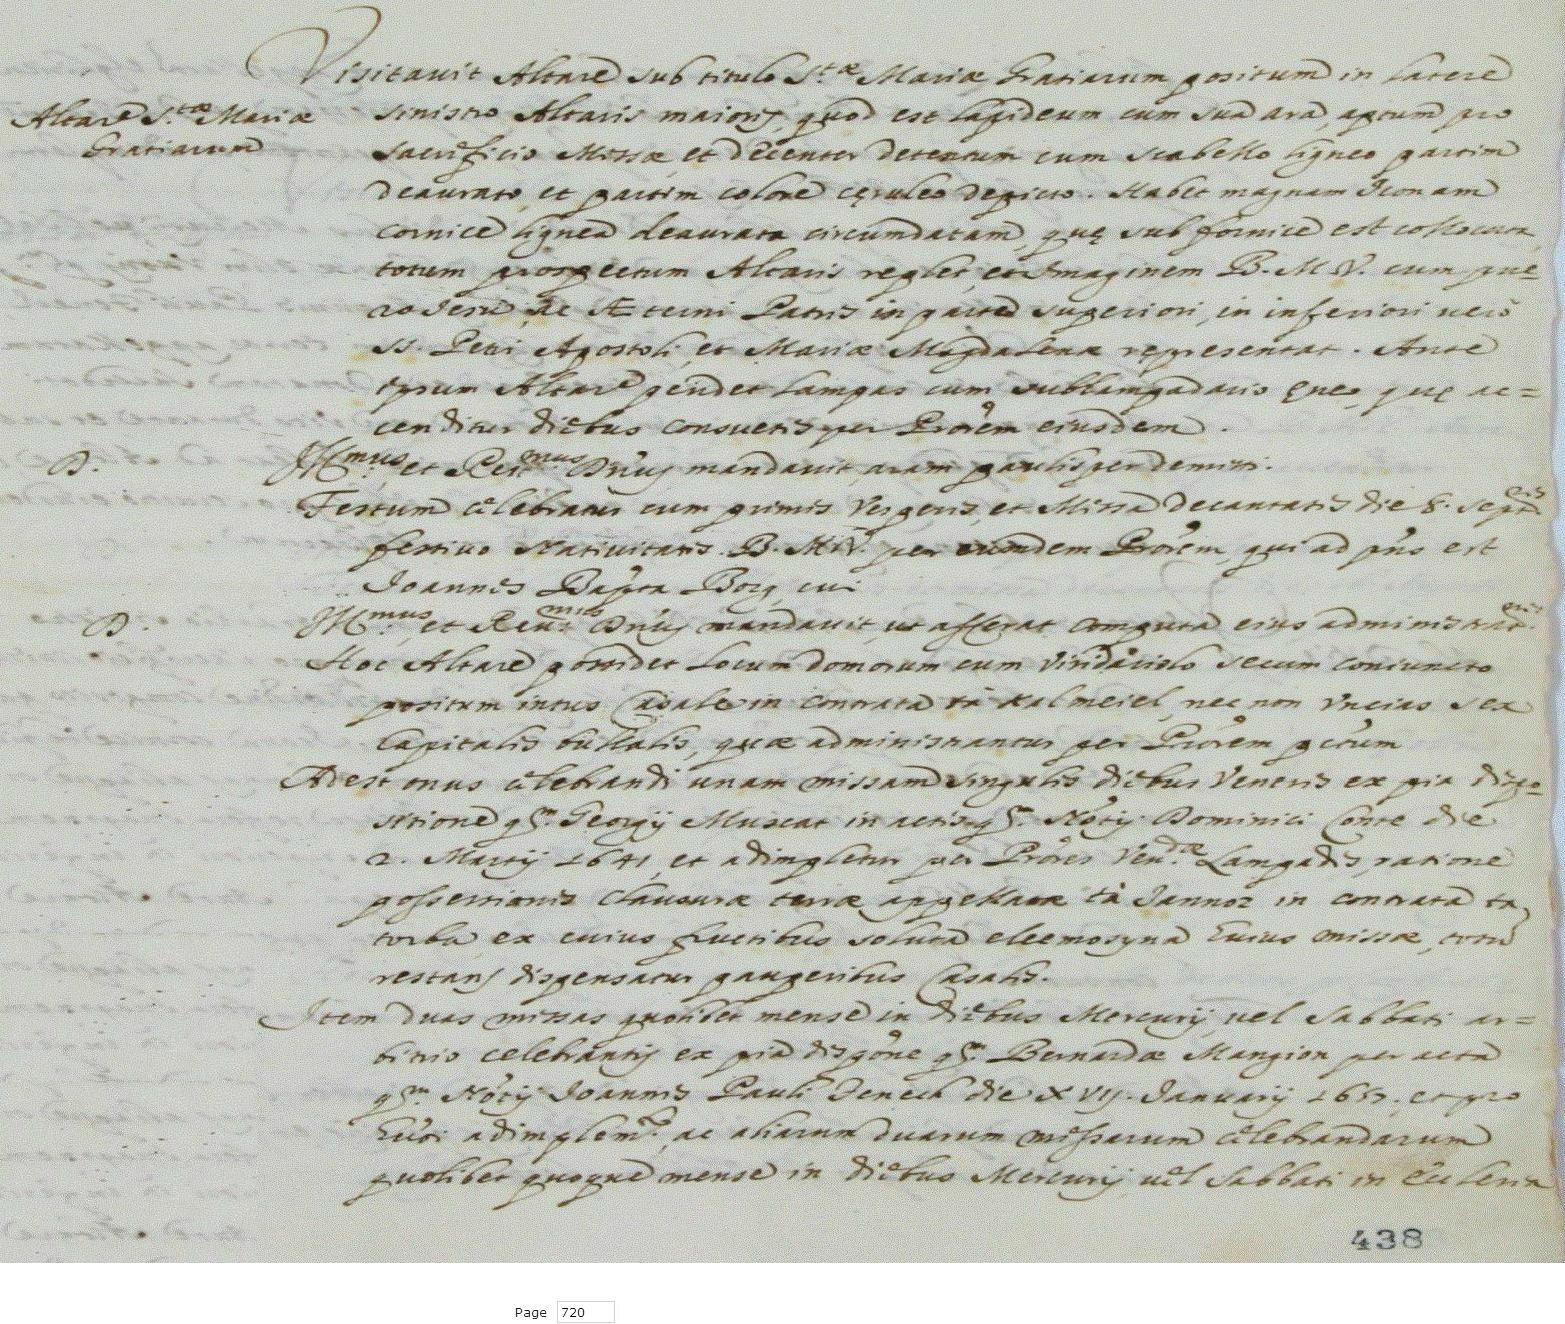 Visitavit Altare sub titulo S.tæ Mariæ Gratiarum positum in latere
Altare S.tæ Mariæ
Gratiarum
sinistro Altaris maioris, quod est lapideum cum sua ara, aptum pro
sacrificio Missæ, et decenter detentum cum scabello ligneo partim
deaurato, et partim colore cęruleo depicto. Habet magnam Iconam
cornice lignea deaurata circumdatam, quę sub fornice est collocata,
totum prospectum Altaris replet, et Imaginem B. M. V. cum pue
ro Iesu, ac Æterni Patris in parte superiori, in inferiori verò
SS. Petri Apostoli, et Mariæ Magdalenæ representat. Ante
ipsum Altare pendet lampas cum sublampadario ęneo, quę ac=
cenditur diebus consuetis per Prõrem eiusdem.
D. Ill.mus et Rev.mus Dñus mandavit, aram paulisper demitti.
Festum celebratur cum primis Vesperis, et Missa decantatis die 8. Sep.bris
festivo Nativitatis B. M. V. per eundem Prõrem, qui ad pñs est
Joannes Bapta Borg, cui
D. Ill.mus et Rev.mus Dñus mandavit, ut afferat computa eius administrat.nis
Hoc Altare possidet locum domorum cum viridariolo secum coniuncto
positum intus Casale in contrata ta Kalmeiel, nec non Vncias sex
Capitalis bullalis, quæ administrantur per Prõrem pẽtum
Adest onus celebrandi unam missam singulis diebus Veneris ex pia dispo=
sitione qm. Georgij Muscat in actis qm. Nõrij Dominici Conte die
2. Martij 1641, et adimpletur per Prõres Ven.dæ Lampadis, ratione
possessionis Clausuræ terræ appellatæ ta Jannoz in contrata ta
torba, ex cuius fructibus soluta eleemosyna huius missæ, totũ
restans dispensatur pauperibus Casalis.
Item duas missas quolibet mense in diebus Mercurij, vel Sabbati ar=
bitrio celebrantis ex pia dispõne qm. Bernardæ Mangion per acta
qm. Nõrij Joannis Pauli Fenech die XVII. Januarij et pro
adimplem.to, ac aliarum duarum missarum celebrandarum
quolibet quoque mense in diebus Mercurij, vel Sabbati in
438
Page 720